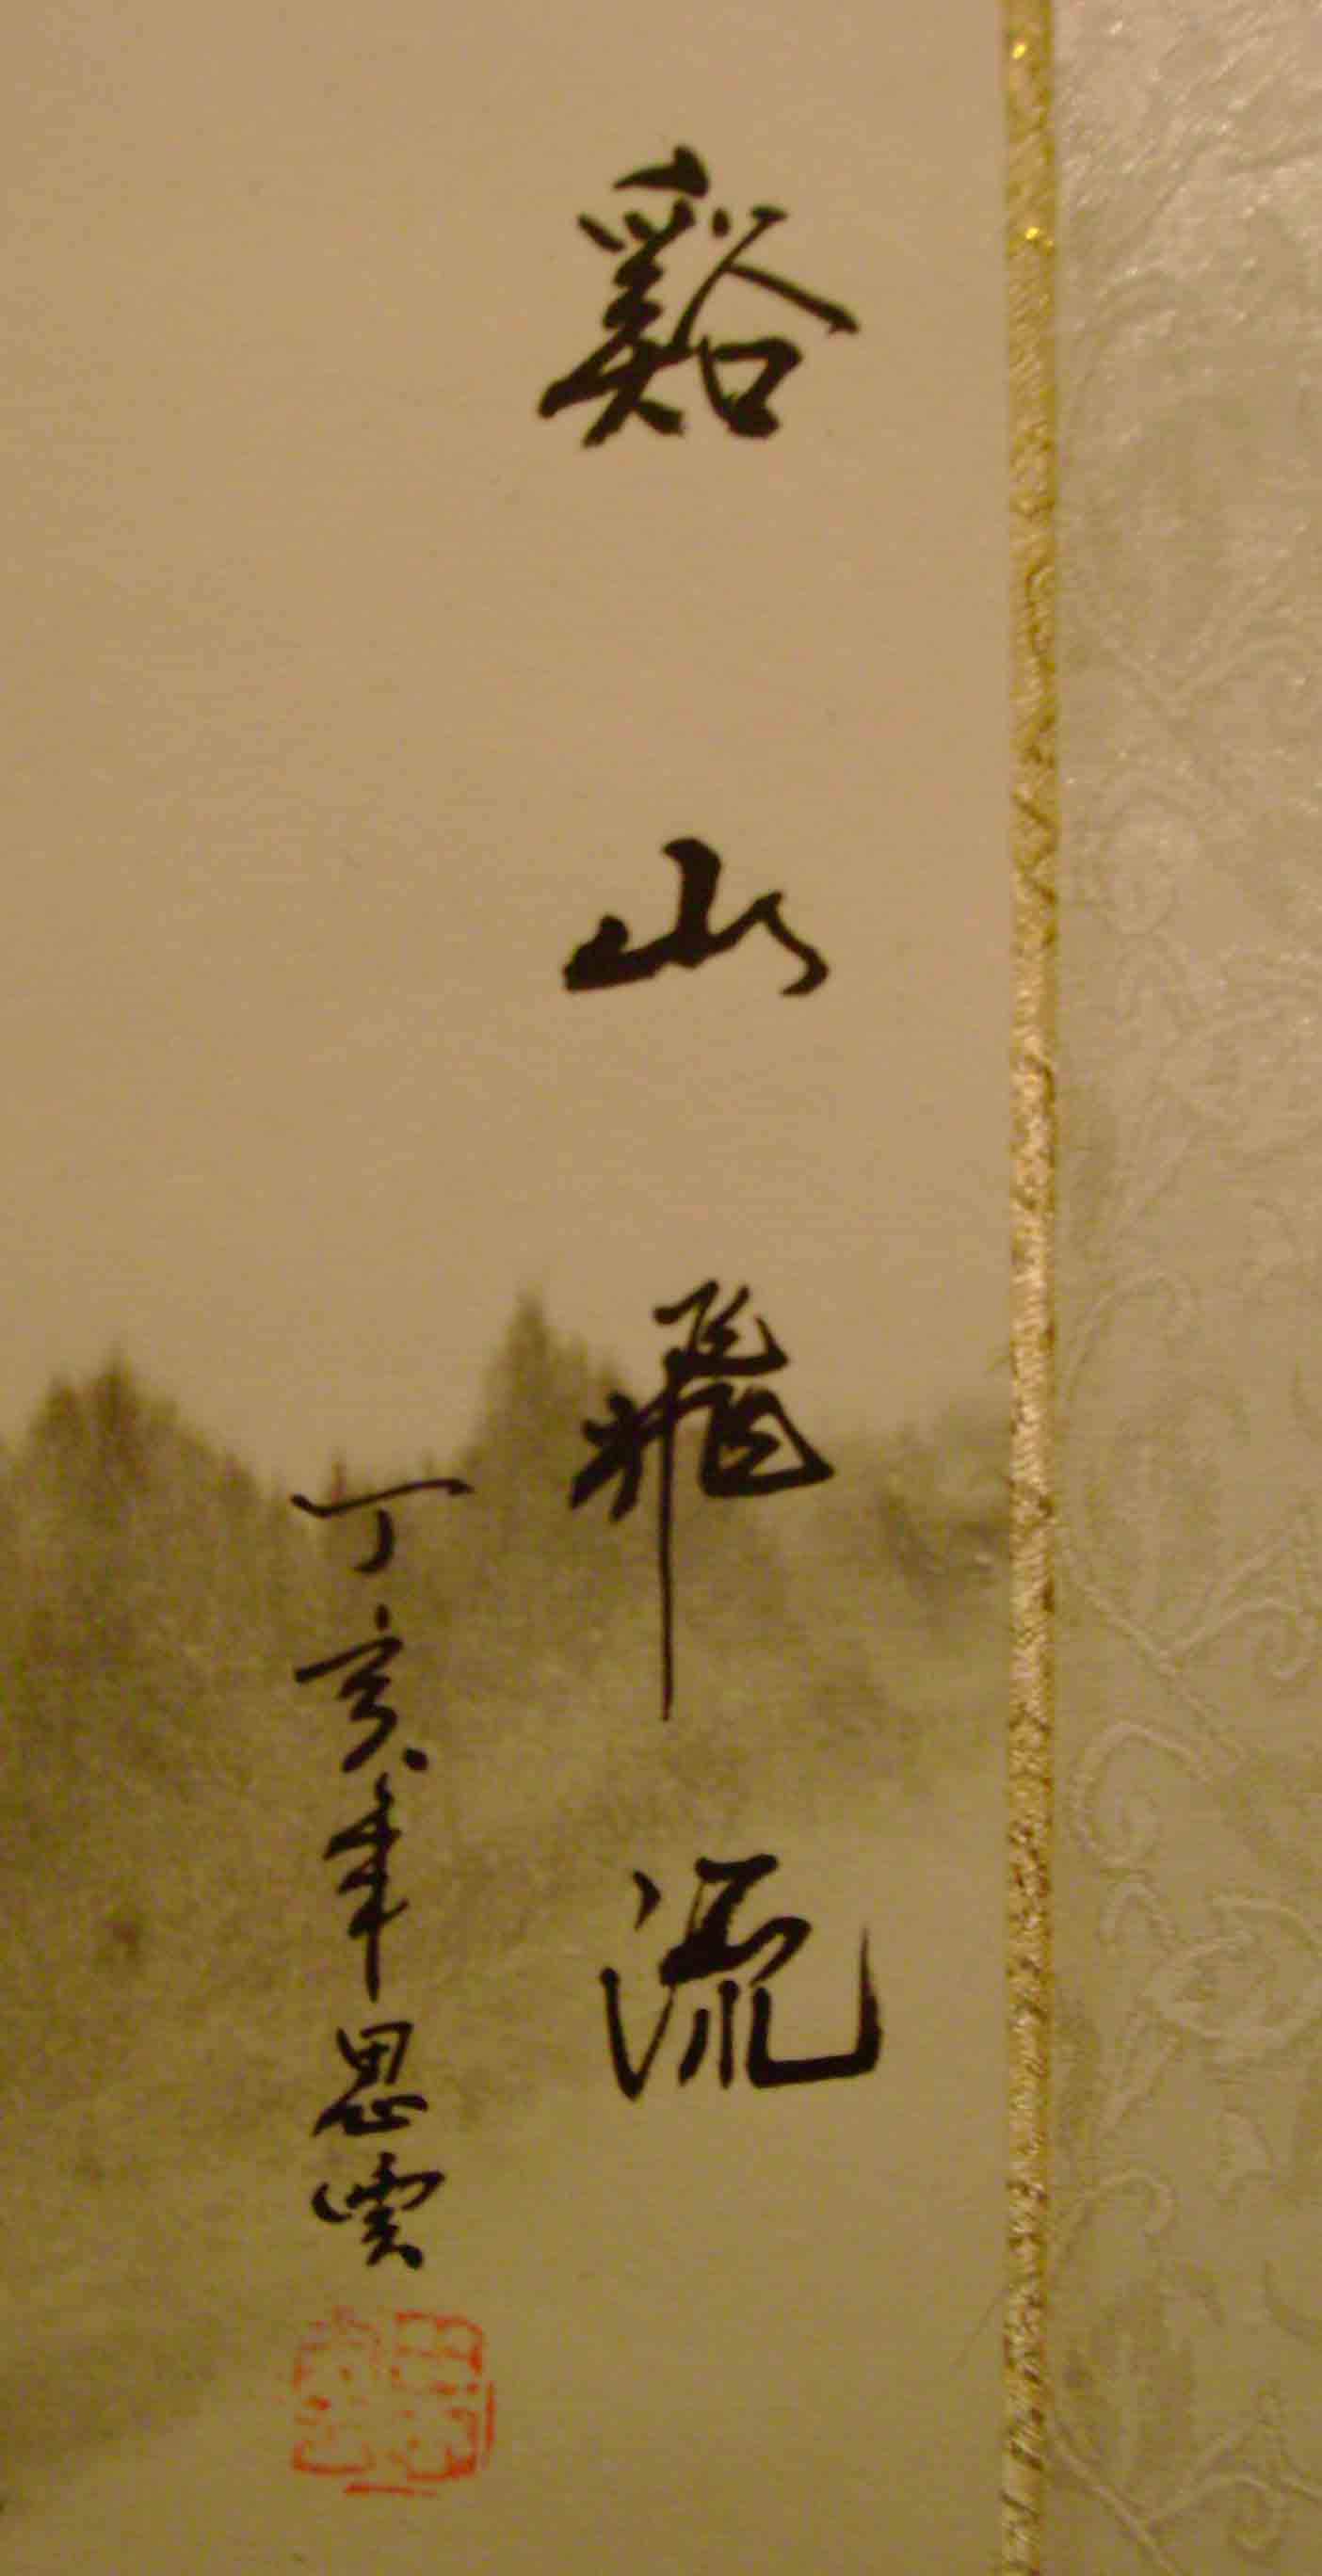 谿山飛流
丁亥年思雲